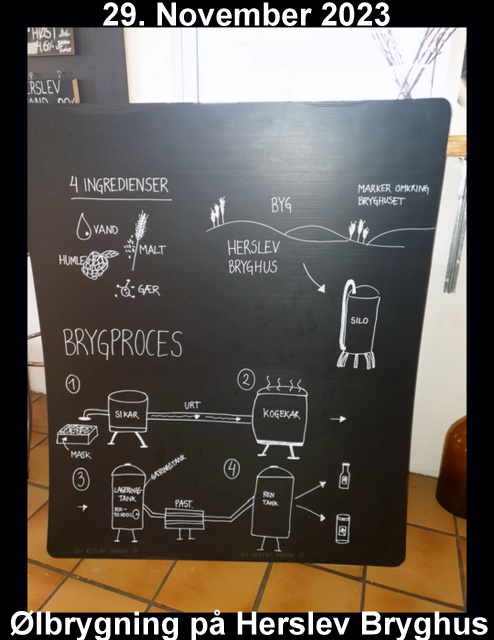 29. November 2023
HØST
ERSLEV
4 INGREDIENSER
VAND
MALT
HUMLE
GÆR
BYG
MARKER OMKRING
BRYGHUSET
HERSLEV
BRYGHUS
SILO
BRYGPROCES
1
SIKAR
URT
2
KOGEKAR
MASK
3
LAGERINGS-
TANK
GÆRINGSTANK
PAST.
4
REN
TANK
Ølbrygning på Herslev Bryghus